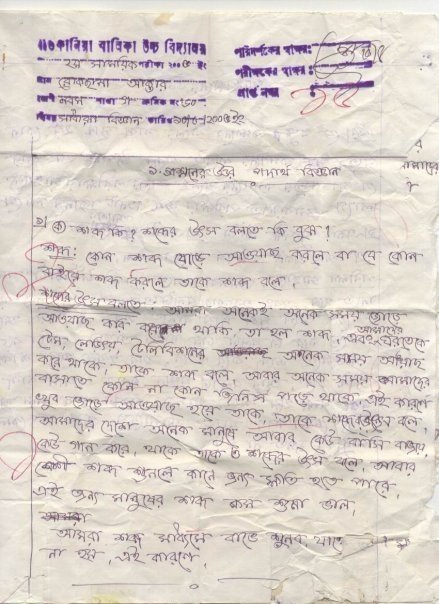 কানিয়া বালিকা উচ্চ বিদ্যালয়
২য় সাময়িক পরীক্ষা ২০০৫ ইং
নাম রোকছানা আক্তার
শ্রেণী নবম শাখা গ ক্রমিক নং
বিষয় সাধারন বিজ্ঞান তারিখ
পরিদর্শকের স্বাক্ষর:
পরীক্ষকের স্বাক্ষর:
প্রাপ্ত নম্বর
১নং প্রশ্নের উত্তর পদার্থ বিজ্ঞান
১) ক) শব্দ কি? শব্দের উৎস বলতে কি বুঝ?
শব্দ: কোন শব্দ জোড়ে আওয়াজ করলে বা যে কোন
বাইরে শব্দ করলে তাকে শব্দ বলে।
শব্দের উৎস বলতে: আমরা অনেকেই অনেক সময় জোড়ে
আওয়াজ করে থাকি, তা হল শব্দ, আমাদের
টেন, টেলিবিশনের অনেক সময় আওয়াজ
করে থাকে, তাকে শব্দ বলে, আবার অনেক সময় আমাদের
বাসাতে কোন না কোন জিনিস পড়ে থাকে, এই কারণে
খুব জোড়ে আওয়াজ হয়ে থাকে, তাকে শব্দের উৎস বলে,
আমাদের দেশে অনেক মানুষে আবার কেউ বাসি বাজায়,
কেউ গান করে, থাকে তাকে ও শব্দের উৎস বলে, আবার
বেশী শব্দ শুনলে কানে জন্য ক্ষতি হতে পারে,
এই জন্য মানুষের শব্দ কম শুনা ভাল,
আমরা শব্দ মাধ্যমে
না হয়, এই কারণে,